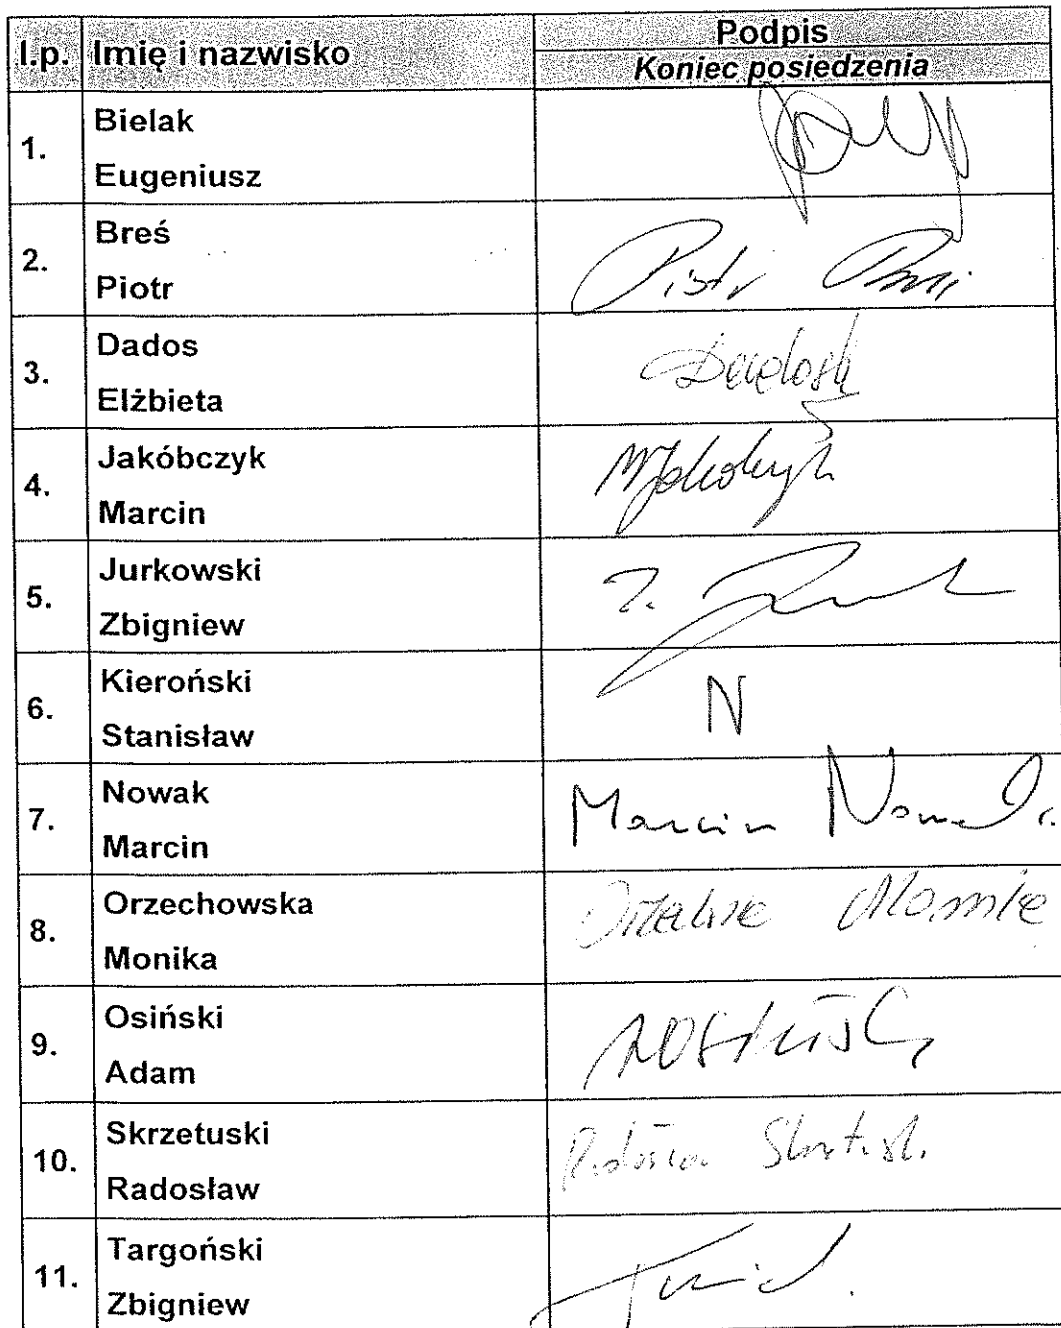 l.p. Imię i nazwisko Podpis
Koniec posiedzenia
1. Bielak
Eugeniusz
2. Breś
Piotr
Piotr
3. Dados
Elżbieta
4. Jakóbczyk
Marcin
MJakóbczyk
5. Jurkowski
Zbigniew
Z.
6. Kieroński
Stanisław
N
7. Nowak
Marcin
Marcin Nowak
8. Orzechowska
Monika
9. Osiński
Adam
AOsiński
10. Skrzetuski
Radosław
11. Targoński
Zbigniew